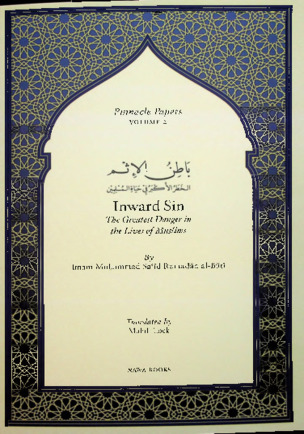 Pinnacle Papers
VOLUME 2
بَاطِنُ الإِثْمِ
الخطر الأكبر في حياة المسلمين
Inward Sin
The Greatest Danger in
the Lives of Muslims
By
Imam Muhammad Saʿīd Ramaḍān al-Būṭī
Translated by
Mahdi Lock
NAWA BOOKS